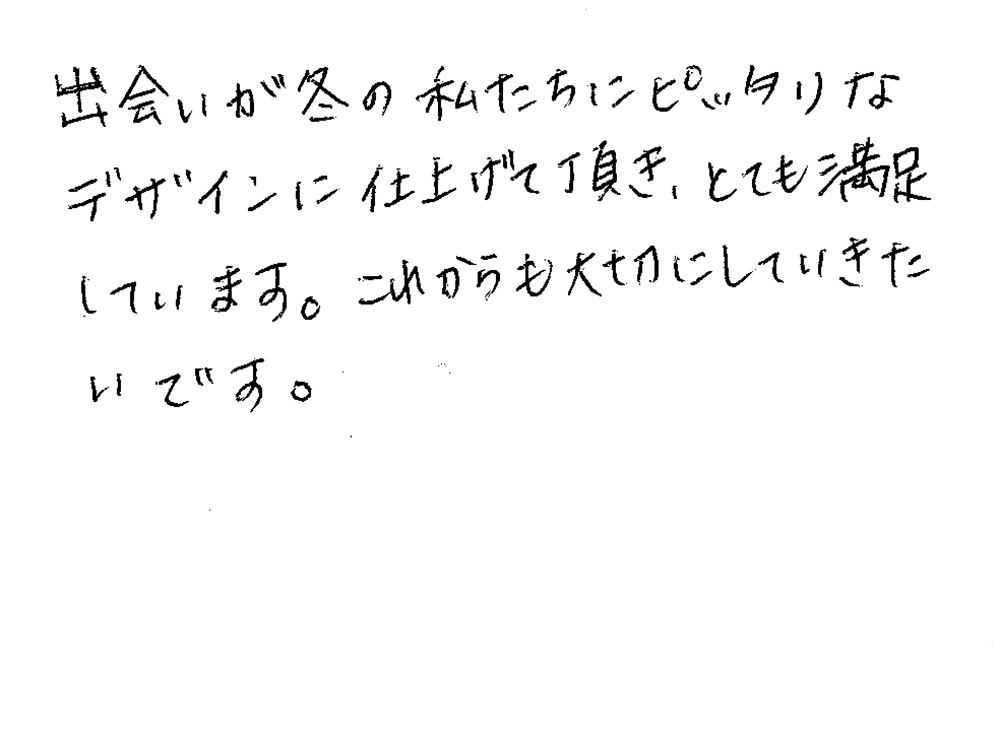 出会いが冬の私たちにピッタリな
デザインに仕上げて頂き、とても満足
しています。これからも大切にしていきた
いです。